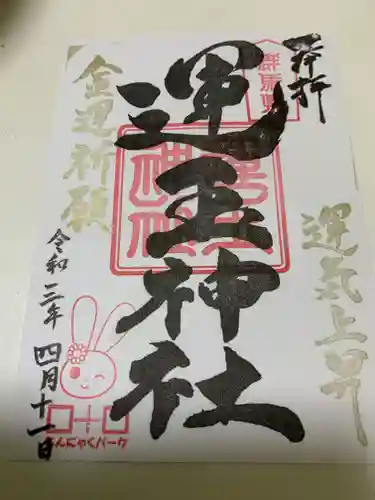 奉拝
運気上昇
運玉神社
金運祈願
令和三年 四月十一日
こんにゃくパーク